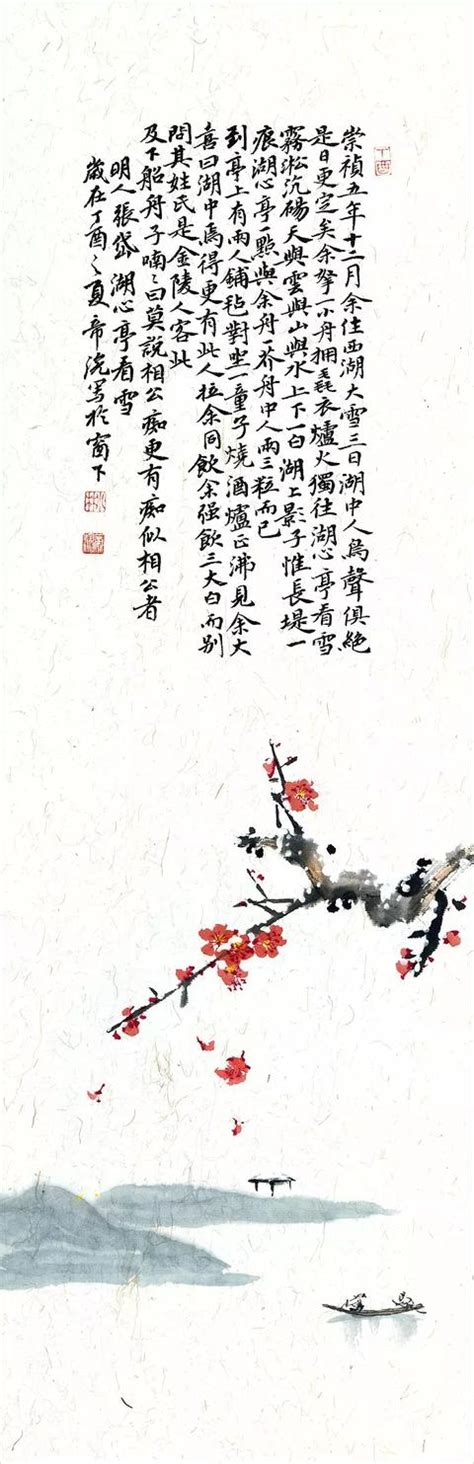 崇禎五年十二月余住西湖大雪三日湖中人鳥聲俱絶
是日更定矣余拏一小舟擁毳衣爐火獨往湖心亭看雪
霧淞沆碭天與雲與山與水上下一白湖上影子惟長堤一
痕湖心亭一點與余舟一芥舟中人兩三粒而已
到亭上有兩人鋪毡對坐一童子燒酒爐正沸見余大
喜曰湖中焉得更有此人拉余同飲余强飲三大白而别
問其姓氏是金陵人客此
及下船舟子喃〻曰莫說相公痴更有痴似相公者
明人張岱湖心亭看雪
歲在丁酉之夏帝浣写於窗下
丁酉